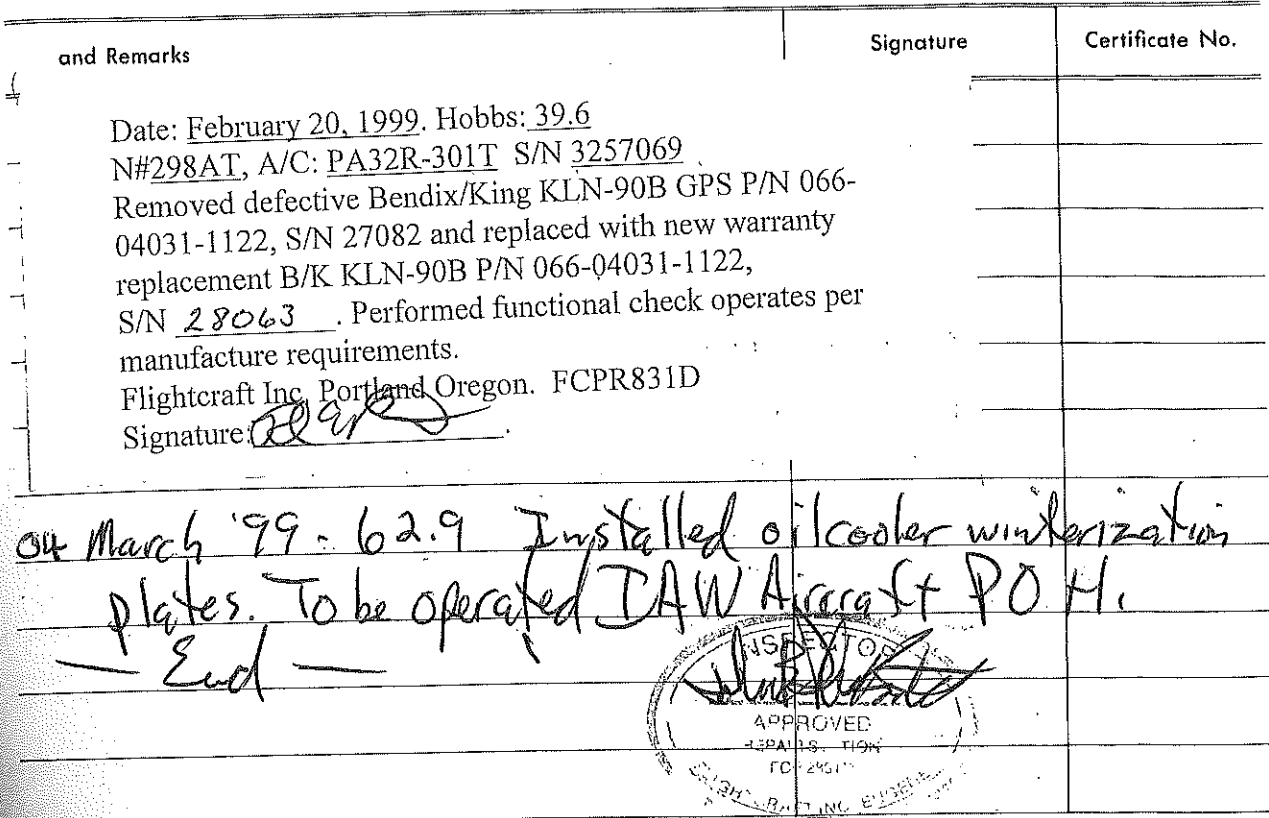 and Remarks Signature Certificate No.
Date: February 20, 1999. Hobbs: 39.6
N#298AT, A/C: PA32R-301T S/N 3257069
Removed defective Bendix/King KLN-90B GPS P/N 066-
04031-1122, S/N 27082 and replaced with new warranty
replacement B/K KLN-90B P/N 066-04031-1122,
S/N 28063. Performed functional check operates per
manufacture requirements.
Flightcraft Inc, Portland Oregon. FCPR831D
Signature:
04 March '99 - 62.9 Installed oil cooler winterization
plates. To be operated IAW Aircraft POH.
— End —
INSPECTOR
APPROVED